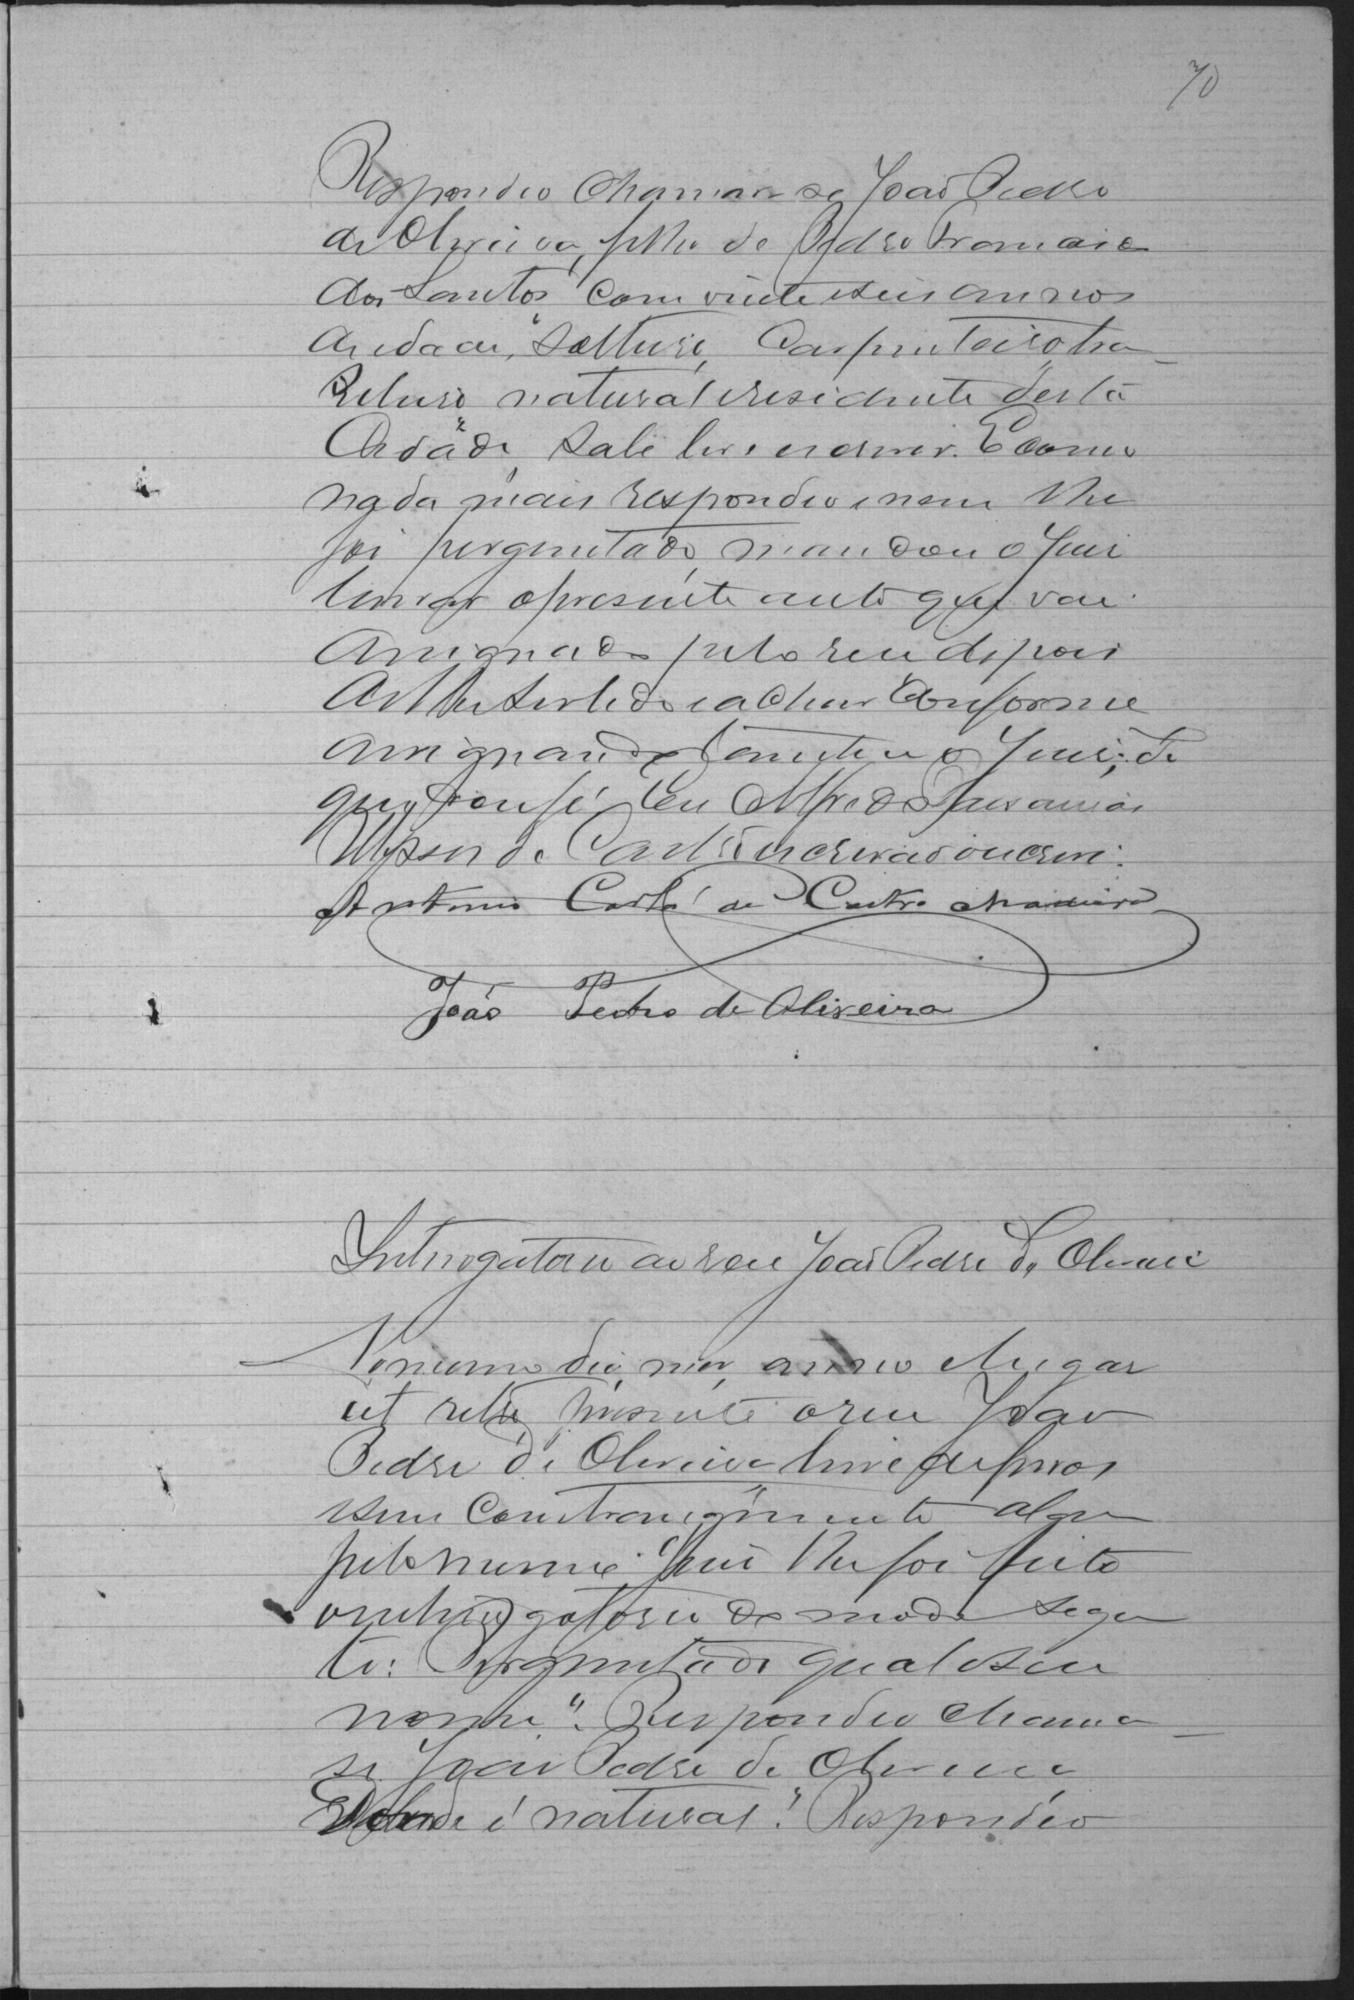 70
Respondeo chamar se João Pedro
de Oliveira, filho de Pedro Francisco
dos Santos com vinte e seis annos
de idade, solteiro, Carpinteiro
natural e residente desta
Cidade, sabe ler e escrever. E como
nada mais respondeo e nem lhe
foi perguntado, mandou o Juiz
lavrar o presente auto que vai
assignado pelo reu depois
de lhe ser lido e achar conforme
assignando tambem o Juiz; do
que dou fé. Eu Alfredo
de Castro escrivão o escrevi.
Antonio Carlos de Castro Madeira
João Pedro de Oliveira
Interrogatorio ao reu João Pedro de Oliveira
No mesmo dia, mez, anno e lugar
ut retro presente o reu João
Pedro de Oliveira livre de ferros
e sem constrangimento algum
pelo mesmo Juiz lhe foi feito
o interrogatorio do modo seguin
te: Perguntado qual o seu
nome? Respondeo chamar
se João Pedro de Oliveira
Donde é natural? Respondeo